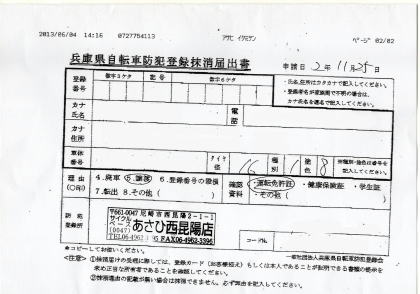 2013/06/04 14:16 0727754113 アサヒ イタミテン ページ 02/02
兵庫県自転車防犯登録抹消届出書
申請日 2、11、25日
登録番号
数字3ケタ 記号 数字6ケタ
・氏名、住所はカタカナで記入してください。
・登録者名が家族間で不明の場合は、
カナ氏名を連名で記入してください。
カナ氏名
電話
カナ住所
車体番号
タイヤ径 16 種別 1 塗色 8
理由(○印)
4.廃車 5.譲渡 6.登録番号の毀損
7.転出 8.その他( )
確認資料
・運転免許証 ・健康保険証 ・学生証
・その他( )
防犯登録所
〒661-0047 尼崎市西昆陽2-1
サイクルベース あさひ西昆陽店
(0047)
FAX06-4962-3396
コードNo.
※コピーしてお使いください。
一般社団法人兵庫県自転車防犯登録会
<注意>
①抹消届けの受理に際しては、登録カード(お客様控え)もしくは本人であることが証明できる書類の提示を
求め正当な所有者であることを確認してください。
②抹消理由の記載が無い場合は抹消できません。必ず算出を記載してください。